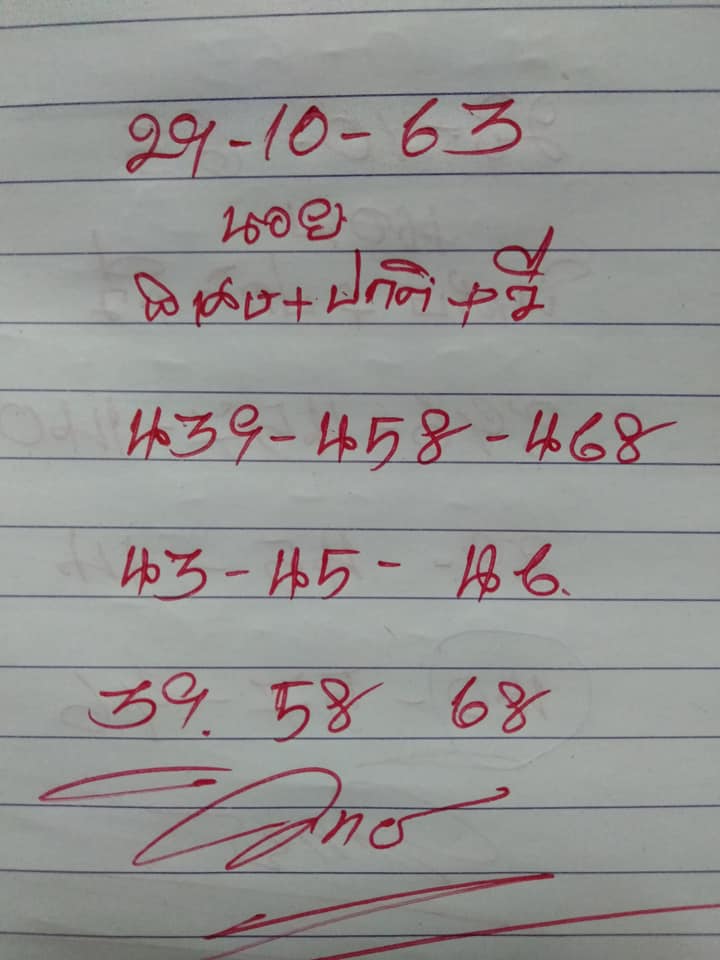 29-10-63
นอย
พิเศษ+ปกติ+วี
439-458-468
43-45- 46.
39. 58 68